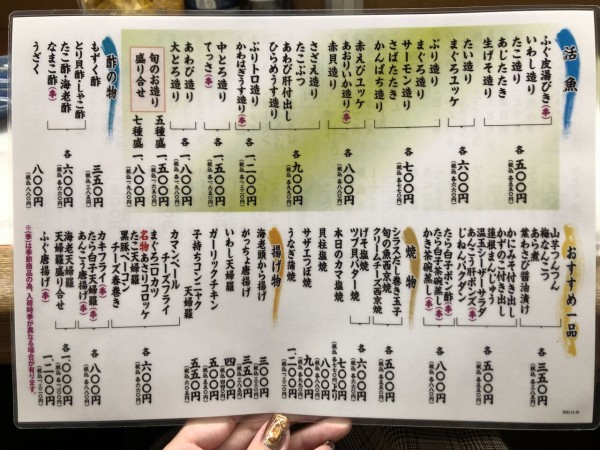 活魚
ふぐ皮湯びき(季)
いわし造り
たこ造り
あじたたき
生げそ造り
各 五〇〇円
(税込 各五五〇円)
たい造り
まぐろユッケ
各 六〇〇円
(税込 各六六〇円)
ぶり造り
まぐろ造り
サーモン造り
さばたたき
かんぱち造り
各 七〇〇円
(税込 各七七〇円)
赤えびユッケ
あおりいか造り(季)
赤貝造り
さざえ造り
たこぶつ
あわび肝付出し
ひらめうす造り
各 九〇〇円
(税込 各九九〇円)
ぶりトロ造り
かわはぎうす造り(季)
各 一、二〇〇円
(税込 各一三二〇円)
中とろ造り
てっさ(季)
各 一、五〇〇円
(税込 各一六五〇円)
あわび造り
大とろ造り
各 一、八〇〇円
(税込 各一九八〇円)
旬のお造り
盛り合せ
五種盛 一、五〇〇円
(税込 一六五〇円)
七種盛 一、八〇〇円
(税込 一九八〇円)
酢の物
もずく酢
三五〇円
(税込 三八五円)
とり貝酢・しゃこ酢
たこ酢・海老酢
なまこ酢(季)
各 六〇〇円
(税込 各六六〇円)
うざく
八〇〇円
(税込 八八〇円)
おすすめ一品
山芋つんつん
梅なんこつ
あら煮
葉わさび醤油漬け
各 三五〇円
(税込 各三八五円)
かにみそ付き出し
かずのこ付き出し
蓮根まんじゅう
温玉シーザーサラダ
あんこう肝ポンズ(季)
じねんグラタン
各 五〇〇円
(税込 各五五〇円)
たら白子ポン酢(季)
たら白子茶碗蒸し(季)
かき茶碗蒸し(季)
各 八〇〇円
(税込 各八八〇円)
焼物
シラスだし巻き玉子
旬の魚西京焼
クリームチーズ西京焼
各 五〇〇円
(税込 各五五〇円)
げそ塩焼
ツブ貝バター焼
各 六〇〇円
(税込 各六六〇円)
本日のカマ塩焼
七〇〇円より
貝柱塩焼
八〇〇円
(税込 八八〇円)
サザエつぼ焼
九〇〇円
(税込 九九〇円)
うなぎ蒲焼
揚げ物
海老頭から揚げ
三〇〇円
(税込 三三〇円)
がっちょ唐揚げ
三五〇円
(税込 三八五円)
いわし天婦羅
四〇〇円
(税込 四四〇円)
ガーリックチキン
五〇〇円
(税込 五五〇円)
子持ちコンニャク
天婦羅
五五〇円
カマンベール
チーズフライ
まぐろコロカツ
名物 あさりコロッケ
たこ天婦羅
黒豚ベーコン
チーズ春巻き
各 六〇〇円
(税込 各六六〇円)
カキフライ(季)
たら白子天婦羅(季)
あんこう唐揚げ(季)
各 八〇〇円
(税込 各八八〇円)
海老天婦羅
天婦羅盛り合せ
各 一、〇〇〇円
(税込 各一一〇〇円)
ふぐ唐揚げ(季)
一、二〇〇円
(税込 一三二〇円)
※(季)は季節商品の為、入荷時季が異なる場合が有ります。